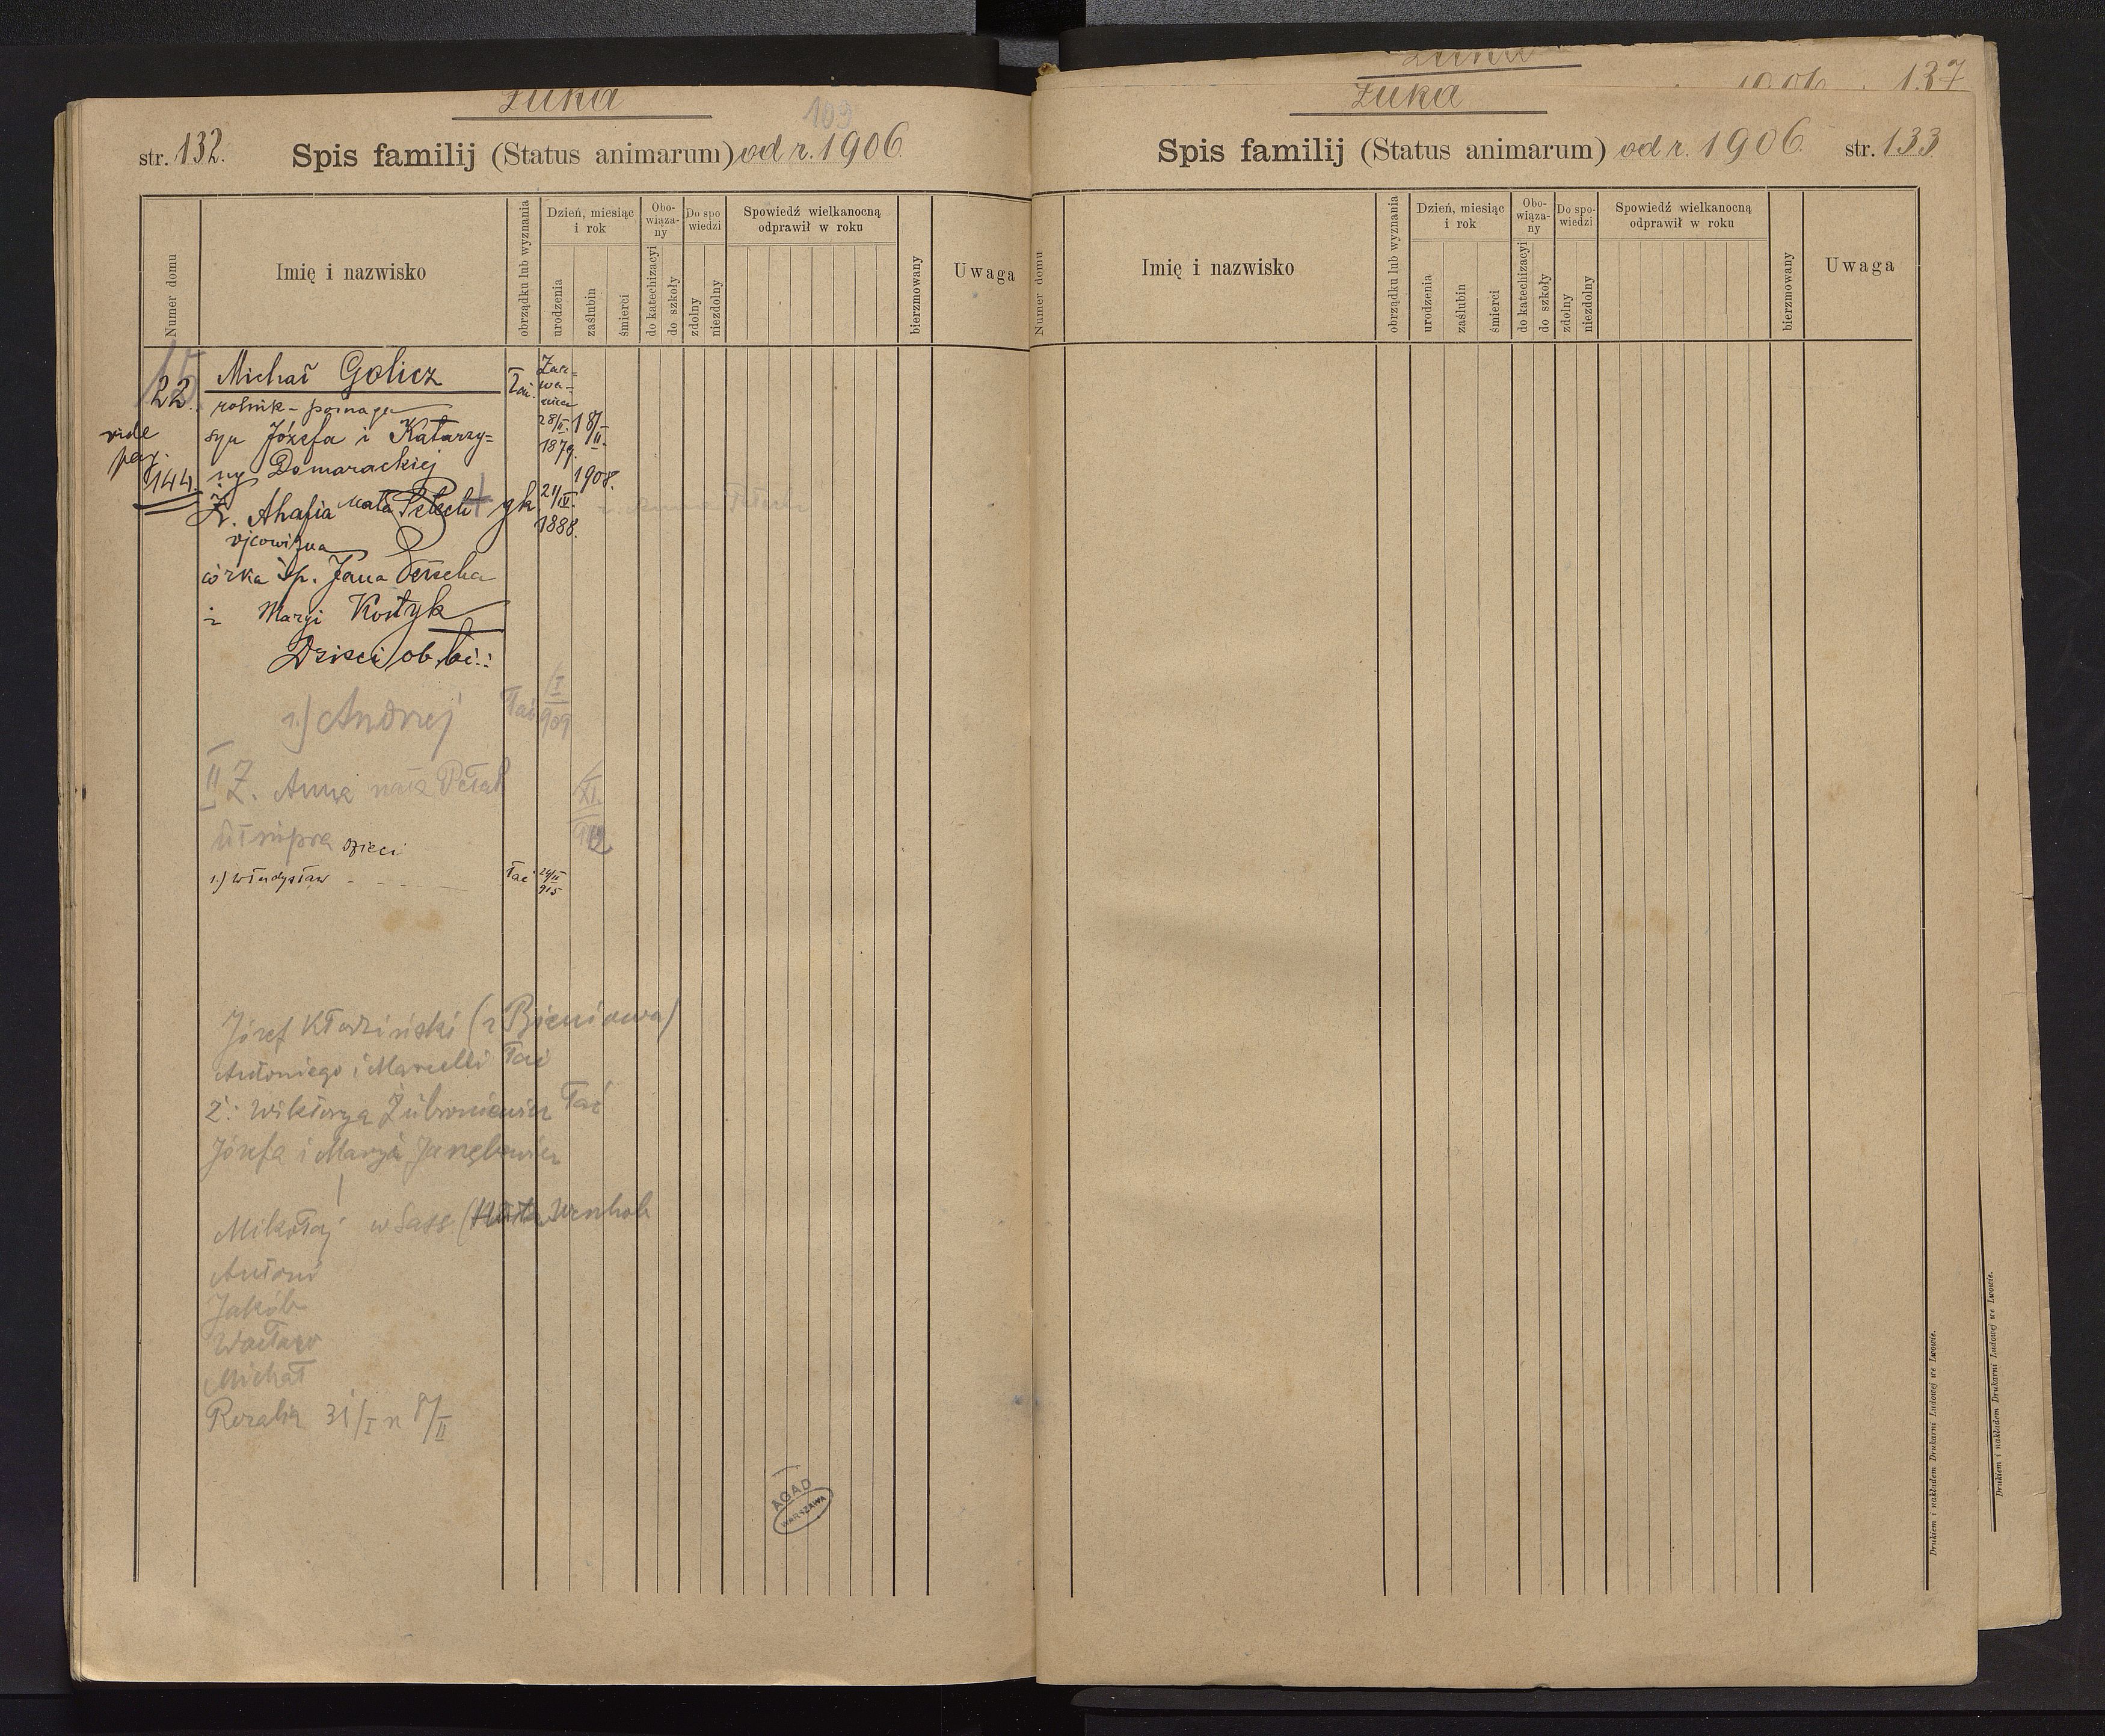 Żuka
109
str. 132.
Spis familij (Status animarum) od r. 1906.
Numer domu
Imię i nazwisko
obrządku lub wyznania
Dzień, miesiąc i rok
urodzenia
zaślubin
śmierci
Obo-wiąza-ny
do katechizacyi
do szkoły
Do spo wiedzi
zdolny
niezdolny
Spowiedź wielkanocną odprawił w roku
bierzmowany
Uwaga
15
22.
vide
pag.
144.
Michał Golicz
łać.
rolnik - pomaga
28/II. 1879.
18/II. 1908.
syn Józefa i Katarzy=
ny Domarackiej
Ż. Ahafia nata Petech gk.
21/IV. 1888.
ojcowizna
córka śp. Jana Petecha
i Maryi Kostyk
Dzieci ob. łać.:
1.) Andrzej łać I 909
II Ż. Anna nata Petah
XI. 912
ut supra
Dzieci
1.) Władysław - - - - łać 24/II 915
Józef Kłodziński (z Bieniowa)
Antoniego i Marcelli łać
Ż: Wiktorya Żubroniewicz łać
Józefa i Maryi
Mikołaj w Sass. (Huta
Antoni
Jakób
Wacław
Michał
Rozalia 31/I n 8/II
AGAD
WARSZAWA
Żuka
1906
137
Żuka
Spis familij (Status animarum) od r. 1906.
str. 133
Numer domu
Imię i nazwisko
obrządku lub wyznania
Dzień, miesiąc i rok
urodzenia
zaślubin
śmierci
Obo-wiąza-ny
do katechizacyi
do szkoły
Do spo-wiedzi
zdolny
niezdolny
Spowiedź wielkanocną odprawił w roku
bierzmowany
Uwaga
Drukiem i nakładem Drukarni Ludowej we Lwowie.
Drukiem i nakładem Drukarni Ludowej we Lwowie.